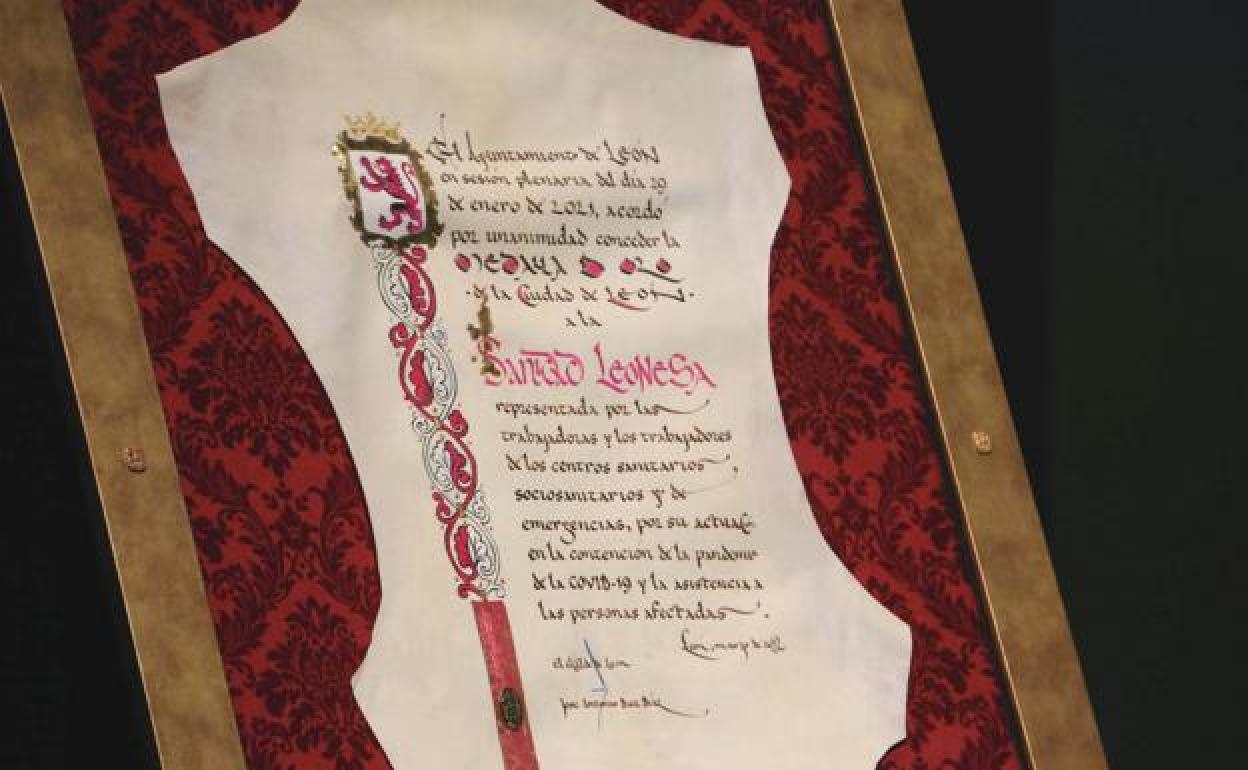 El Ayuntamiento de LEÓN
en sesion plenaria del día 29
de enero de 2021, acordó
por unanimidad conceder la
MEDALLA DE ORO
de la Ciudad de LEON
a la
SANIDAD LEONESA
representada por las
trabajadoras y los trabajadores
de los centros sanitarios,
sociosanitarios y de
emergencias, por su actuac
en la contencion de la pandemia
de la COVID-19 y la asistencia a
las personas afectadas.
León, marzo de
el alcalde de León
José Antonio Diez Díaz